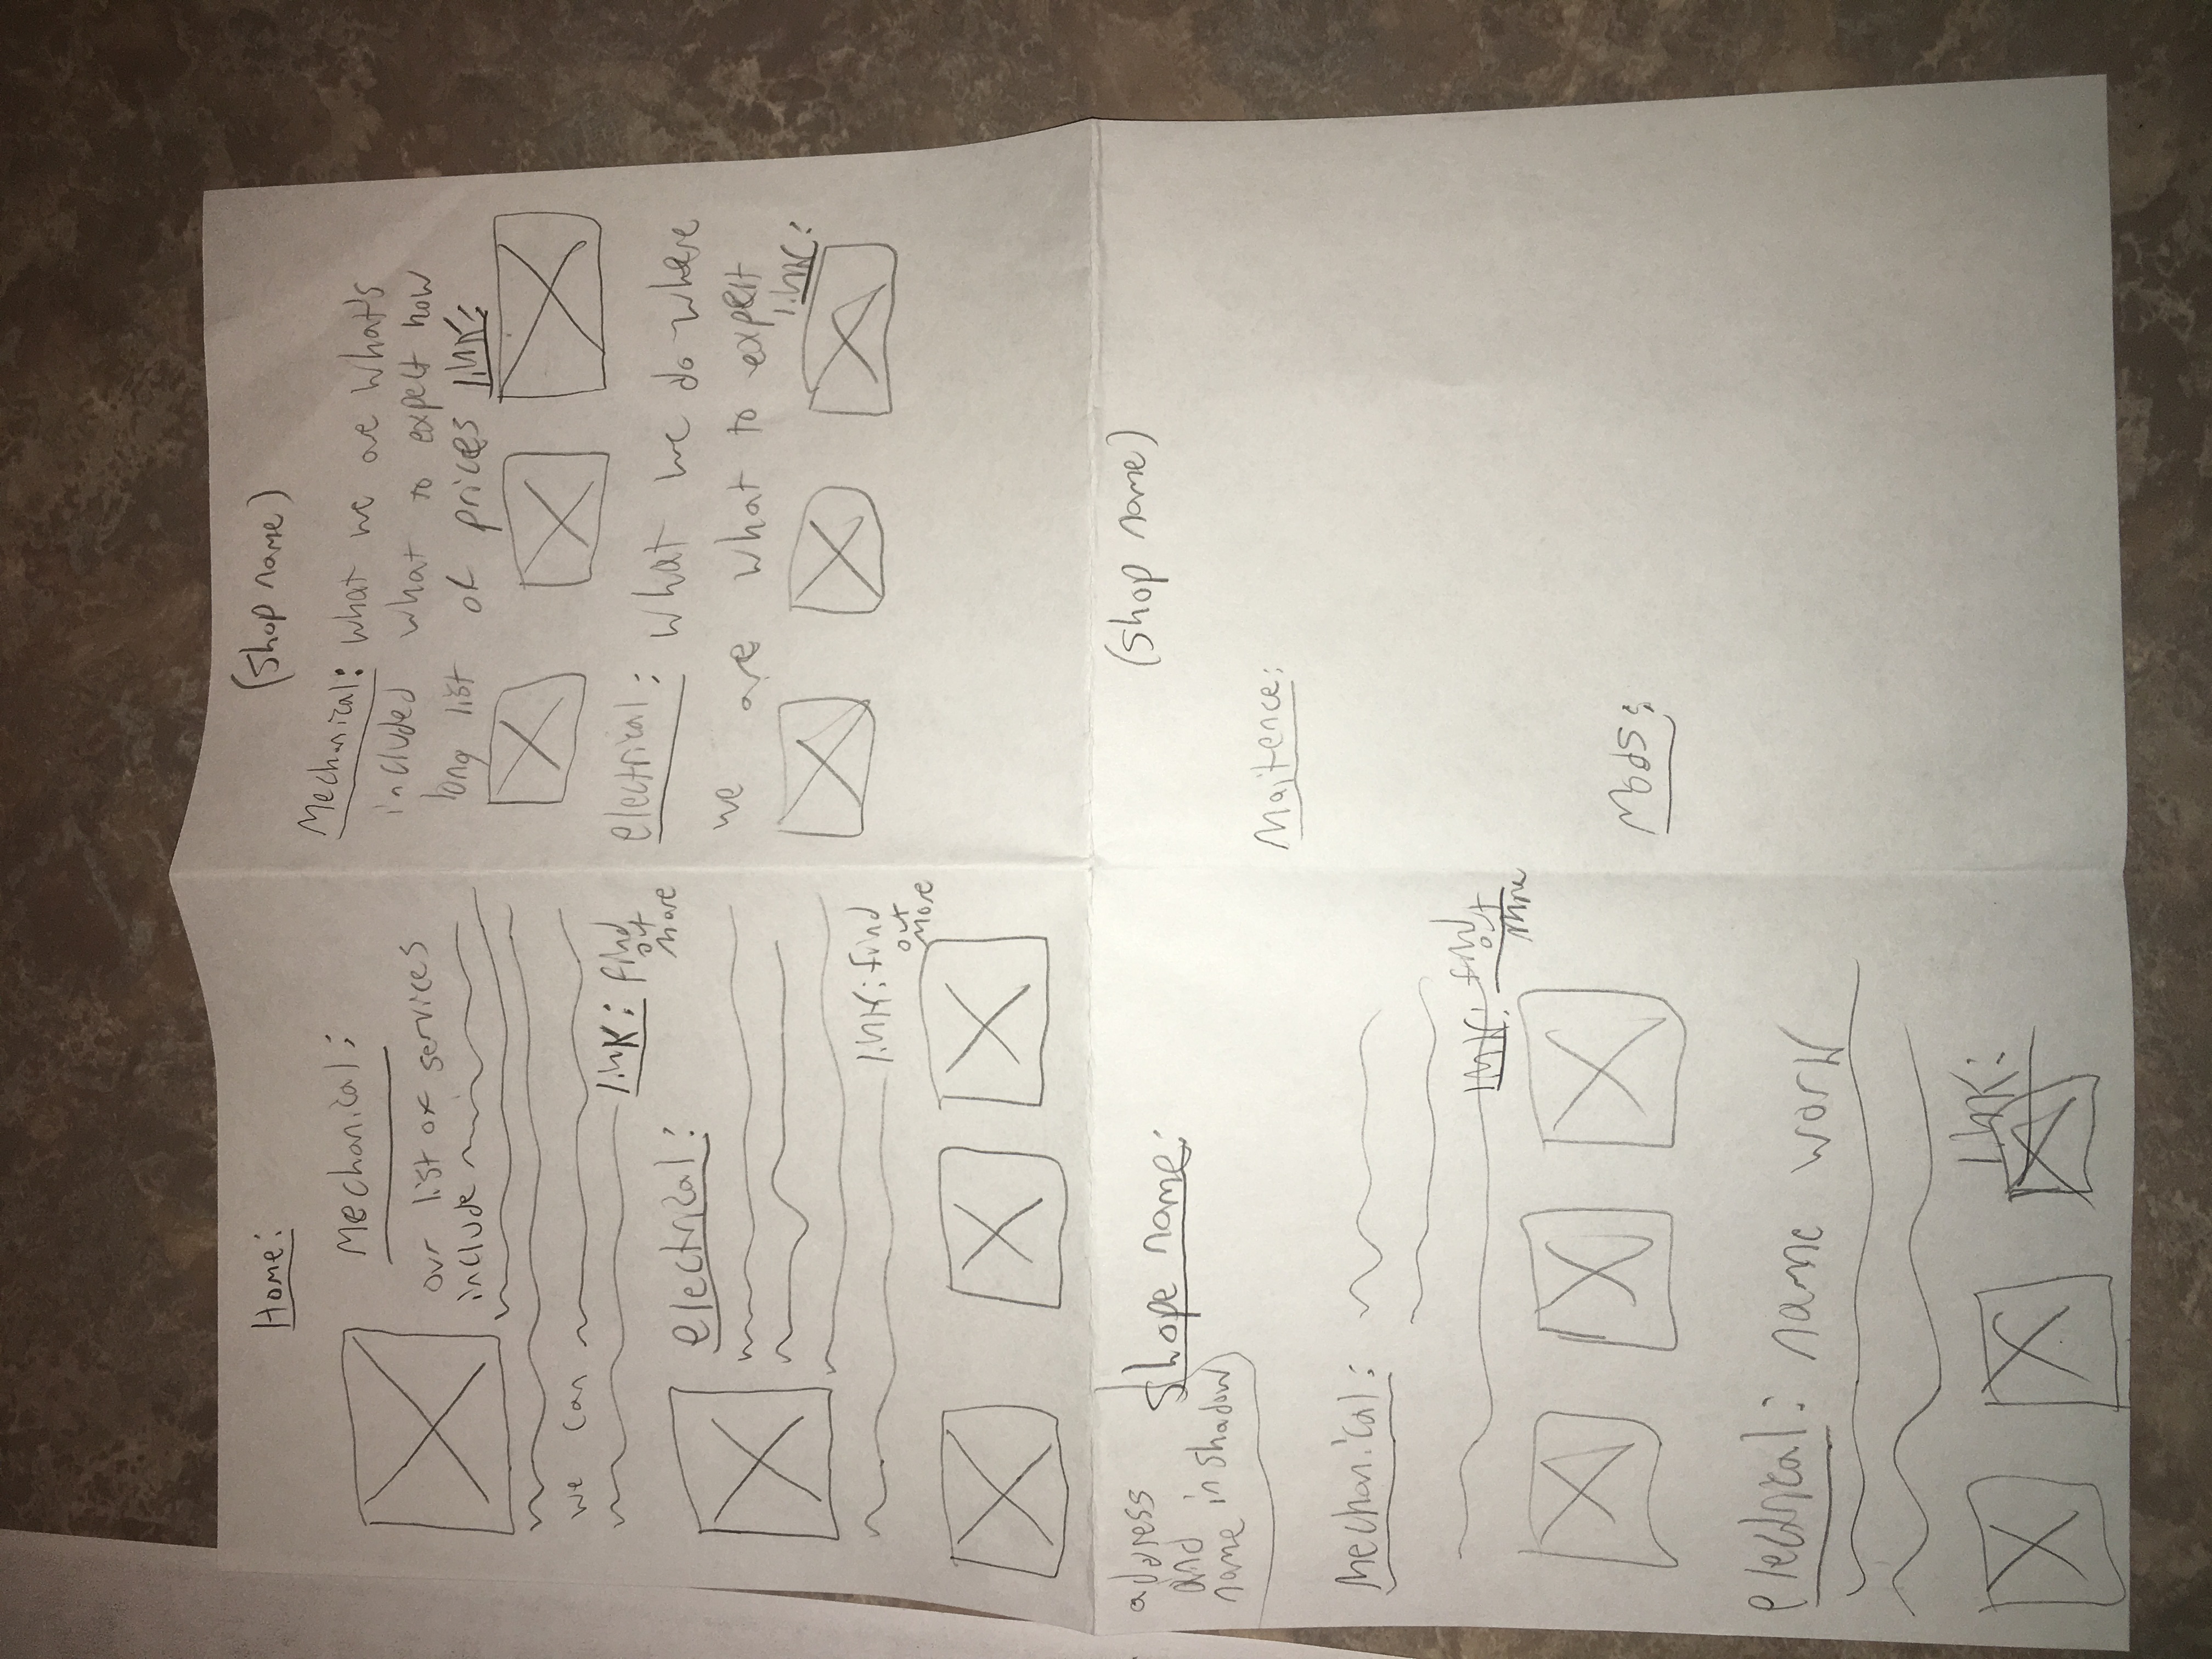 Home:
Mechanical:
our list of services
include
we can
link: find
out
more
electrical:
link: find
out
more
(Shop name)
Mechanical: what we are what's
included what to expect how
long list of prices link:
electrical: what we do where
we are what to expect
link:
address
and
name in shadow
Shope name:
Mechanical:
link: find
out
more
electrical: name work
link:
(Shop name)
Maitence:
Mods: